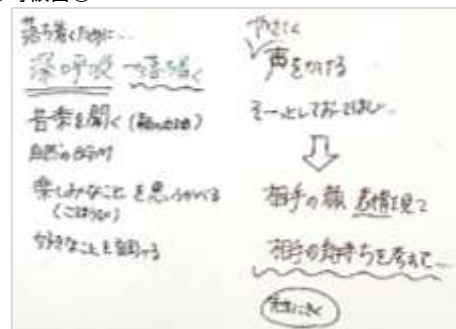 落ち着くために…
深呼吸→落ち着く
音楽を聞く(
自然の
楽しみなことを思いうかべる
(ごほうび)
好きなことを
やさしく
声をかける
そーっとしておいてほしい…
⇩
相手の顔 表情を見て
相手の気持ちを考えて…
先生にきく